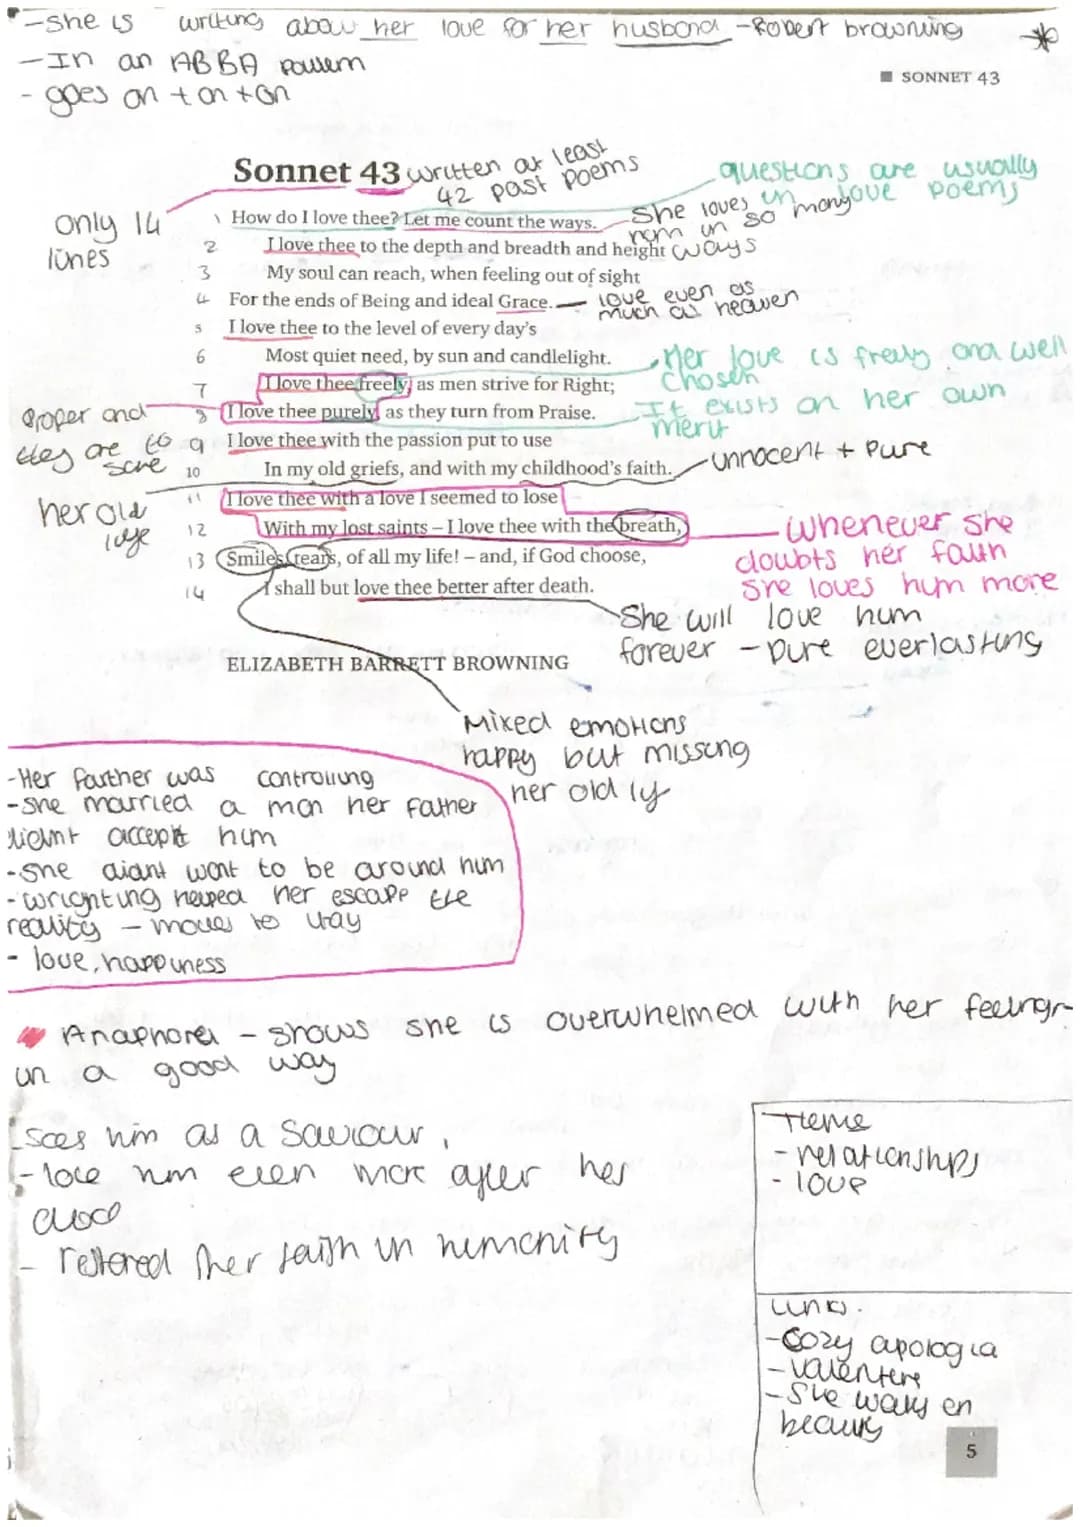 -She is writing about her love for her husband - Robert browning
- In an ABBA pattern
- goes on + on + on
SONNET 43
Sonnet 43
written at least
42 past poems
questions are usually
in love poems
Only 14
lines
1 How do I love thee? Let me count the ways.
She loves
him in so many
ways
2 I love thee to the depth and breadth and height
3 My soul can reach, when feeling out of sight
4 For the ends of Being and ideal Grace.
love even as
much as heaven
5 I love thee to the level of every day's
6 Most quiet need, by sun and candlelight.
Her love is freely and well
chosen
7 I love thee freely, as men strive for Right;
It exists on her own
merit
8 I love thee purely, as they turn from Praise.
Proper and
they are to
9 I love thee with the passion put to use
10 In my old griefs, and with my childhood's faith.
innocent + pure
her old
11 I love thee with a love I seemed to lose
12 With my lost saints – I love thee with the breath,
Whenever she
doubts her faith
she loves hym more
13 Smiles, tears, of all my life! – and, if God choose,
14 I shall but love thee better after death.
She will love him
forever - pure everlasting
ELIZABETH BARRETT BROWNING
Mixed emotions
happy but missing
her old ly
-Her farther was controlling
-she married a man her father
didnt accept him
-she didnt want to be around him
-wrighting helped her escape the
reality - moves to itay
- love, happiness
Anaphora - shows she is overwhelmed with her feelings
in a good way
Sees him as a Saviour,
- love him even more after her
died
- restored her faith in humanity
Theme
- relationships
- love
Links.
- Cozy apologia
- Valentine
- She walks en
beauty
5